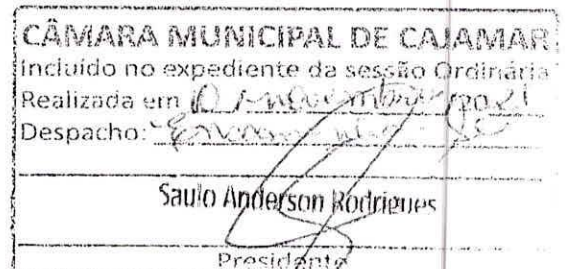 CÂMARA MUNICIPAL DE CAJAMAR
incluído no expediente da sessão Ordinária
Realizada em 10 / novembro / 2021
Despacho: Encaminhe-se
Saulo Anderson Rodrigues
Presidente